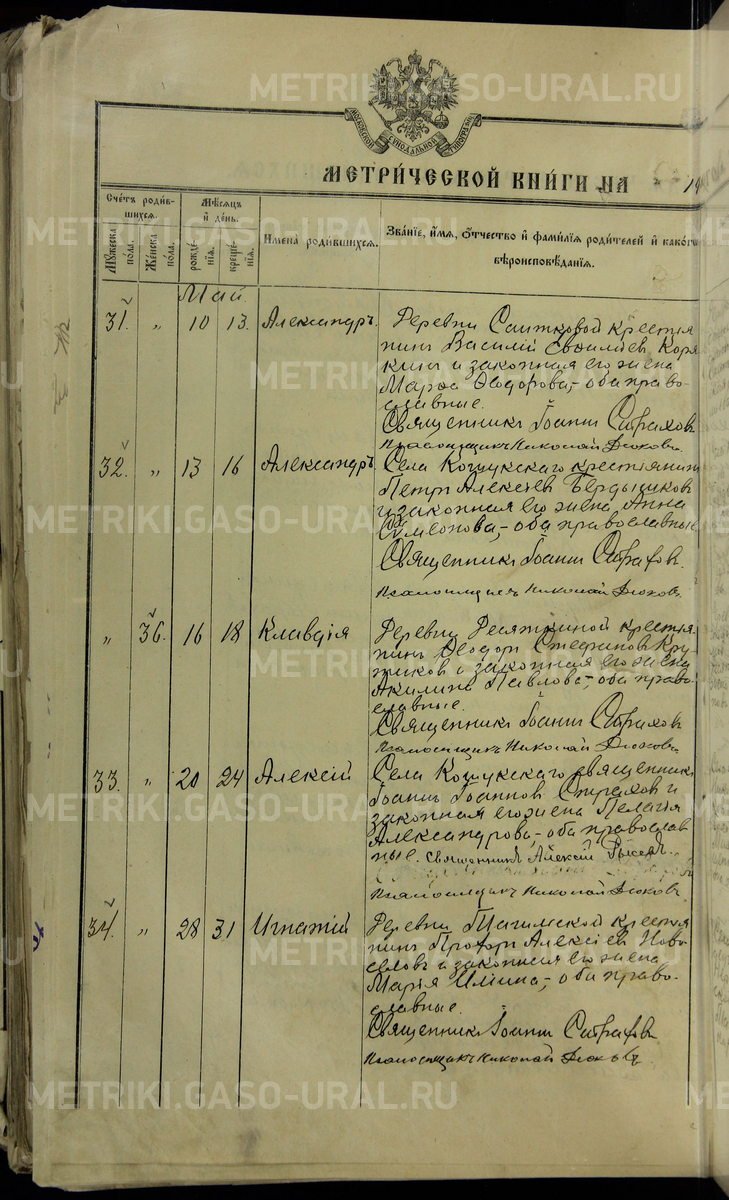 METRIKI.GASO-URAL.RU
МОСКОВСКОЙ СУНОДАЛЬНОЙ
МЕТРИ́ЧЕСКОЙ КНИ́ГИ НА 19
Счетъ роди́в-
шихся.
Мужеска по́ла.
Же́нска по́ла.
Мѣсяцъ
и де́нь.
рожде́-
нія.
креще́-
нія.
Имена̀ роди́вшихся.
Зва́ніе, и́мя, о́тчество и фами́лія роди́телей и како́гѡ
вѣроисповѣ́данія.
Май.
31. „ 10 13. Александръ.
Деревни Саитковой крестья
нинъ Василій Коря
кинъ и законная его жена
Марѳа Ѳеодорова,- оба право-
славные.
Священникъ Іоаннъ Страховъ
Псаломщикъ Николай Дюковъ.
32. „ 13 16 Александръ.
Села Кошукскаго крестьянинъ
Петръ Алексѣевъ Бердышовъ
и законная его жена Анна
Сѵмеонова,- оба православные
Священникъ Іоаннъ Страховъ.
Псаломщикъ Николай Дюковъ.
„ 36. 16 18 Клавдія
Деревни Десяткиной крестья
нинъ Ѳеодоръ Стефановъ Кру-
тиковъ и законная его жена
Акилина Павлова,- оба право-
славные.
Священникъ Іоаннъ Страховъ
Псаломщикъ Николай Дюковъ.
33. „ 20 24 Алексій
Села Кошукскаго священникъ
Іоаннъ Іоанновъ Страховъ и
законная его жена Пелагія
Александрова,- оба православ
ные. Священникъ Алексій
Псаломщикъ Николай Дюковъ.
34. „ 28 31 Игнатій
Деревни Тагильской крестья
нинъ Прохоръ Алексѣевъ Ново-
селовъ и законная его жена
Марія Ильина,- оба право-
славные.
Священникъ Іоаннъ Страховъ
Псаломщикъ Николай Дюковъ.